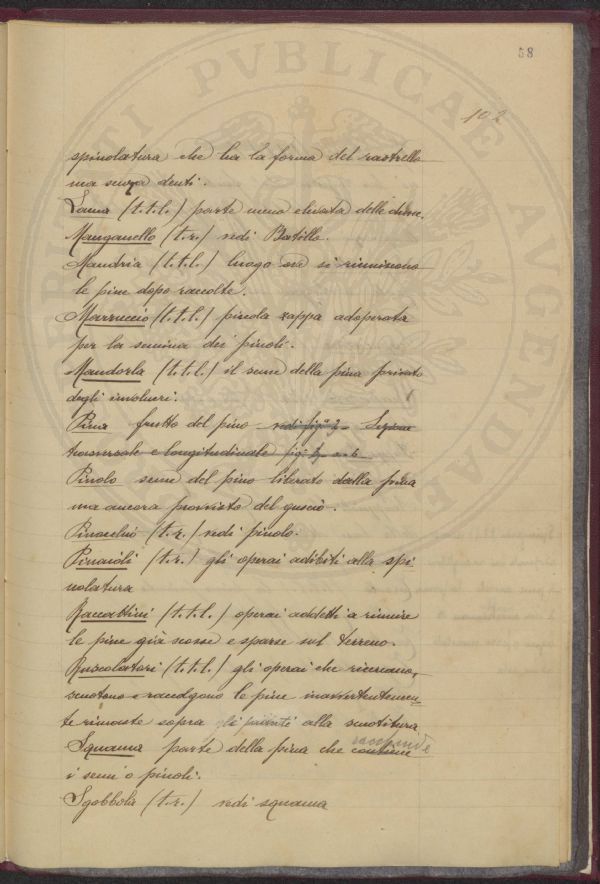 58
102
spinolatura che ha la forma del rastrello
ma senza denti.
Lama (t.t.l.) parte meno elevata delle dune.
Manganello (t.r.) vedi Batillo.
Mandria (t.t.l.) luogo ove si riuniscono
le pine dopo raccolte.
Marruccio (t.t.l.) piccola zappa adoperata
per la semina dei pinoli.
Mandorla (t.t.l.) il seme della pina privato
degli involucri.
Pina frutto del pino vedi fig.ª 2 Sezione
trasversale e longitudinale fig.
Pinolo seme del pino liberato dalla pina
ma ancora provvisto del guscio.
Pinocchio (t.r.) vedi pinolo.
Pinaioli (t.r.) gli operai adibiti alla spi
nolatura
Raccattini (t.t.l.) operai addetti a riunire
le pine già scosse e sparse sul terreno.
Ruscolatori (t.t.l.) gli operai che ricercano,
scuotono e raccolgono le pine inavvertentemen
te rimaste sopra alla scuotitura
Squama parte della pina che contiene
nasconde
i semi o pinoli.
Sgobbola (t.r.) vedi squama
PVBLICAE